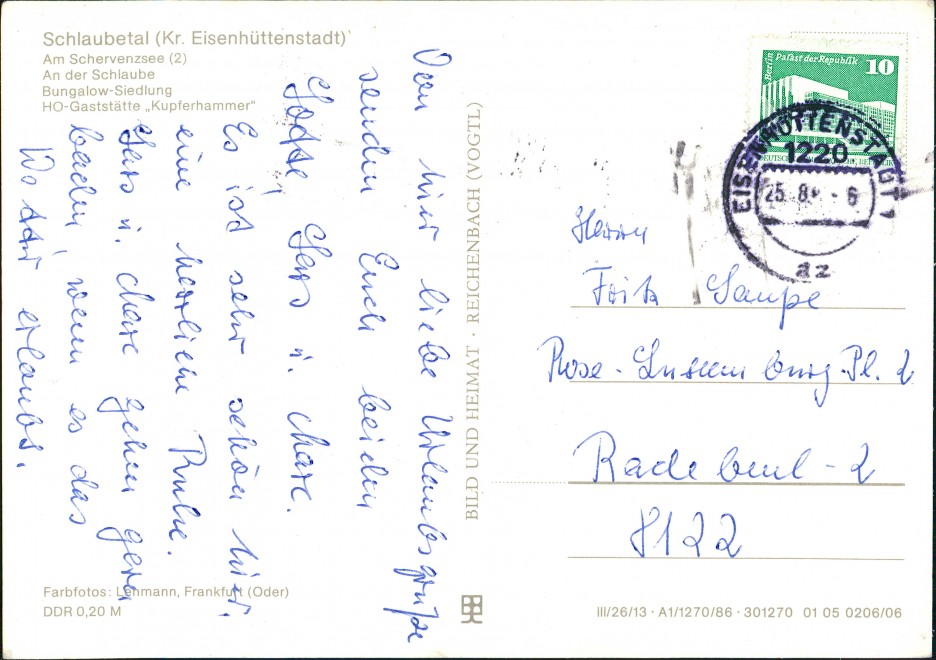 Schlaubetal (Kr. Eisenhüttenstadt)
Am Schervenzsee (2)
An der Schlaube
Bungalow-Siedlung
HO-Gaststätte „Kupferhammer"
Von hier liebe Urlaubsgrüße
senden Euch beiden
Lars u.
Es ist sehr schön hier,
eine herrliche Ruhe.
Lars u. gehen gern
baden, wenn es das
Wetter erlaubt.
Farbfotos: Lehmann, Frankfurt (Oder)
DDR 0,20 M
BILD UND HEIMAT · REICHENBACH (VOGTL)
Berlin Palast der Republik 10
EISENHÜTTENSTADT 1
1220
25.8. - 6
az
Herrn
Fritz Saupe
Rosa-Luxemburg-Pl. 2
Radebeul-2
8122
III/26/13 · A1/1270/86 · 301270 01 05 0206/06